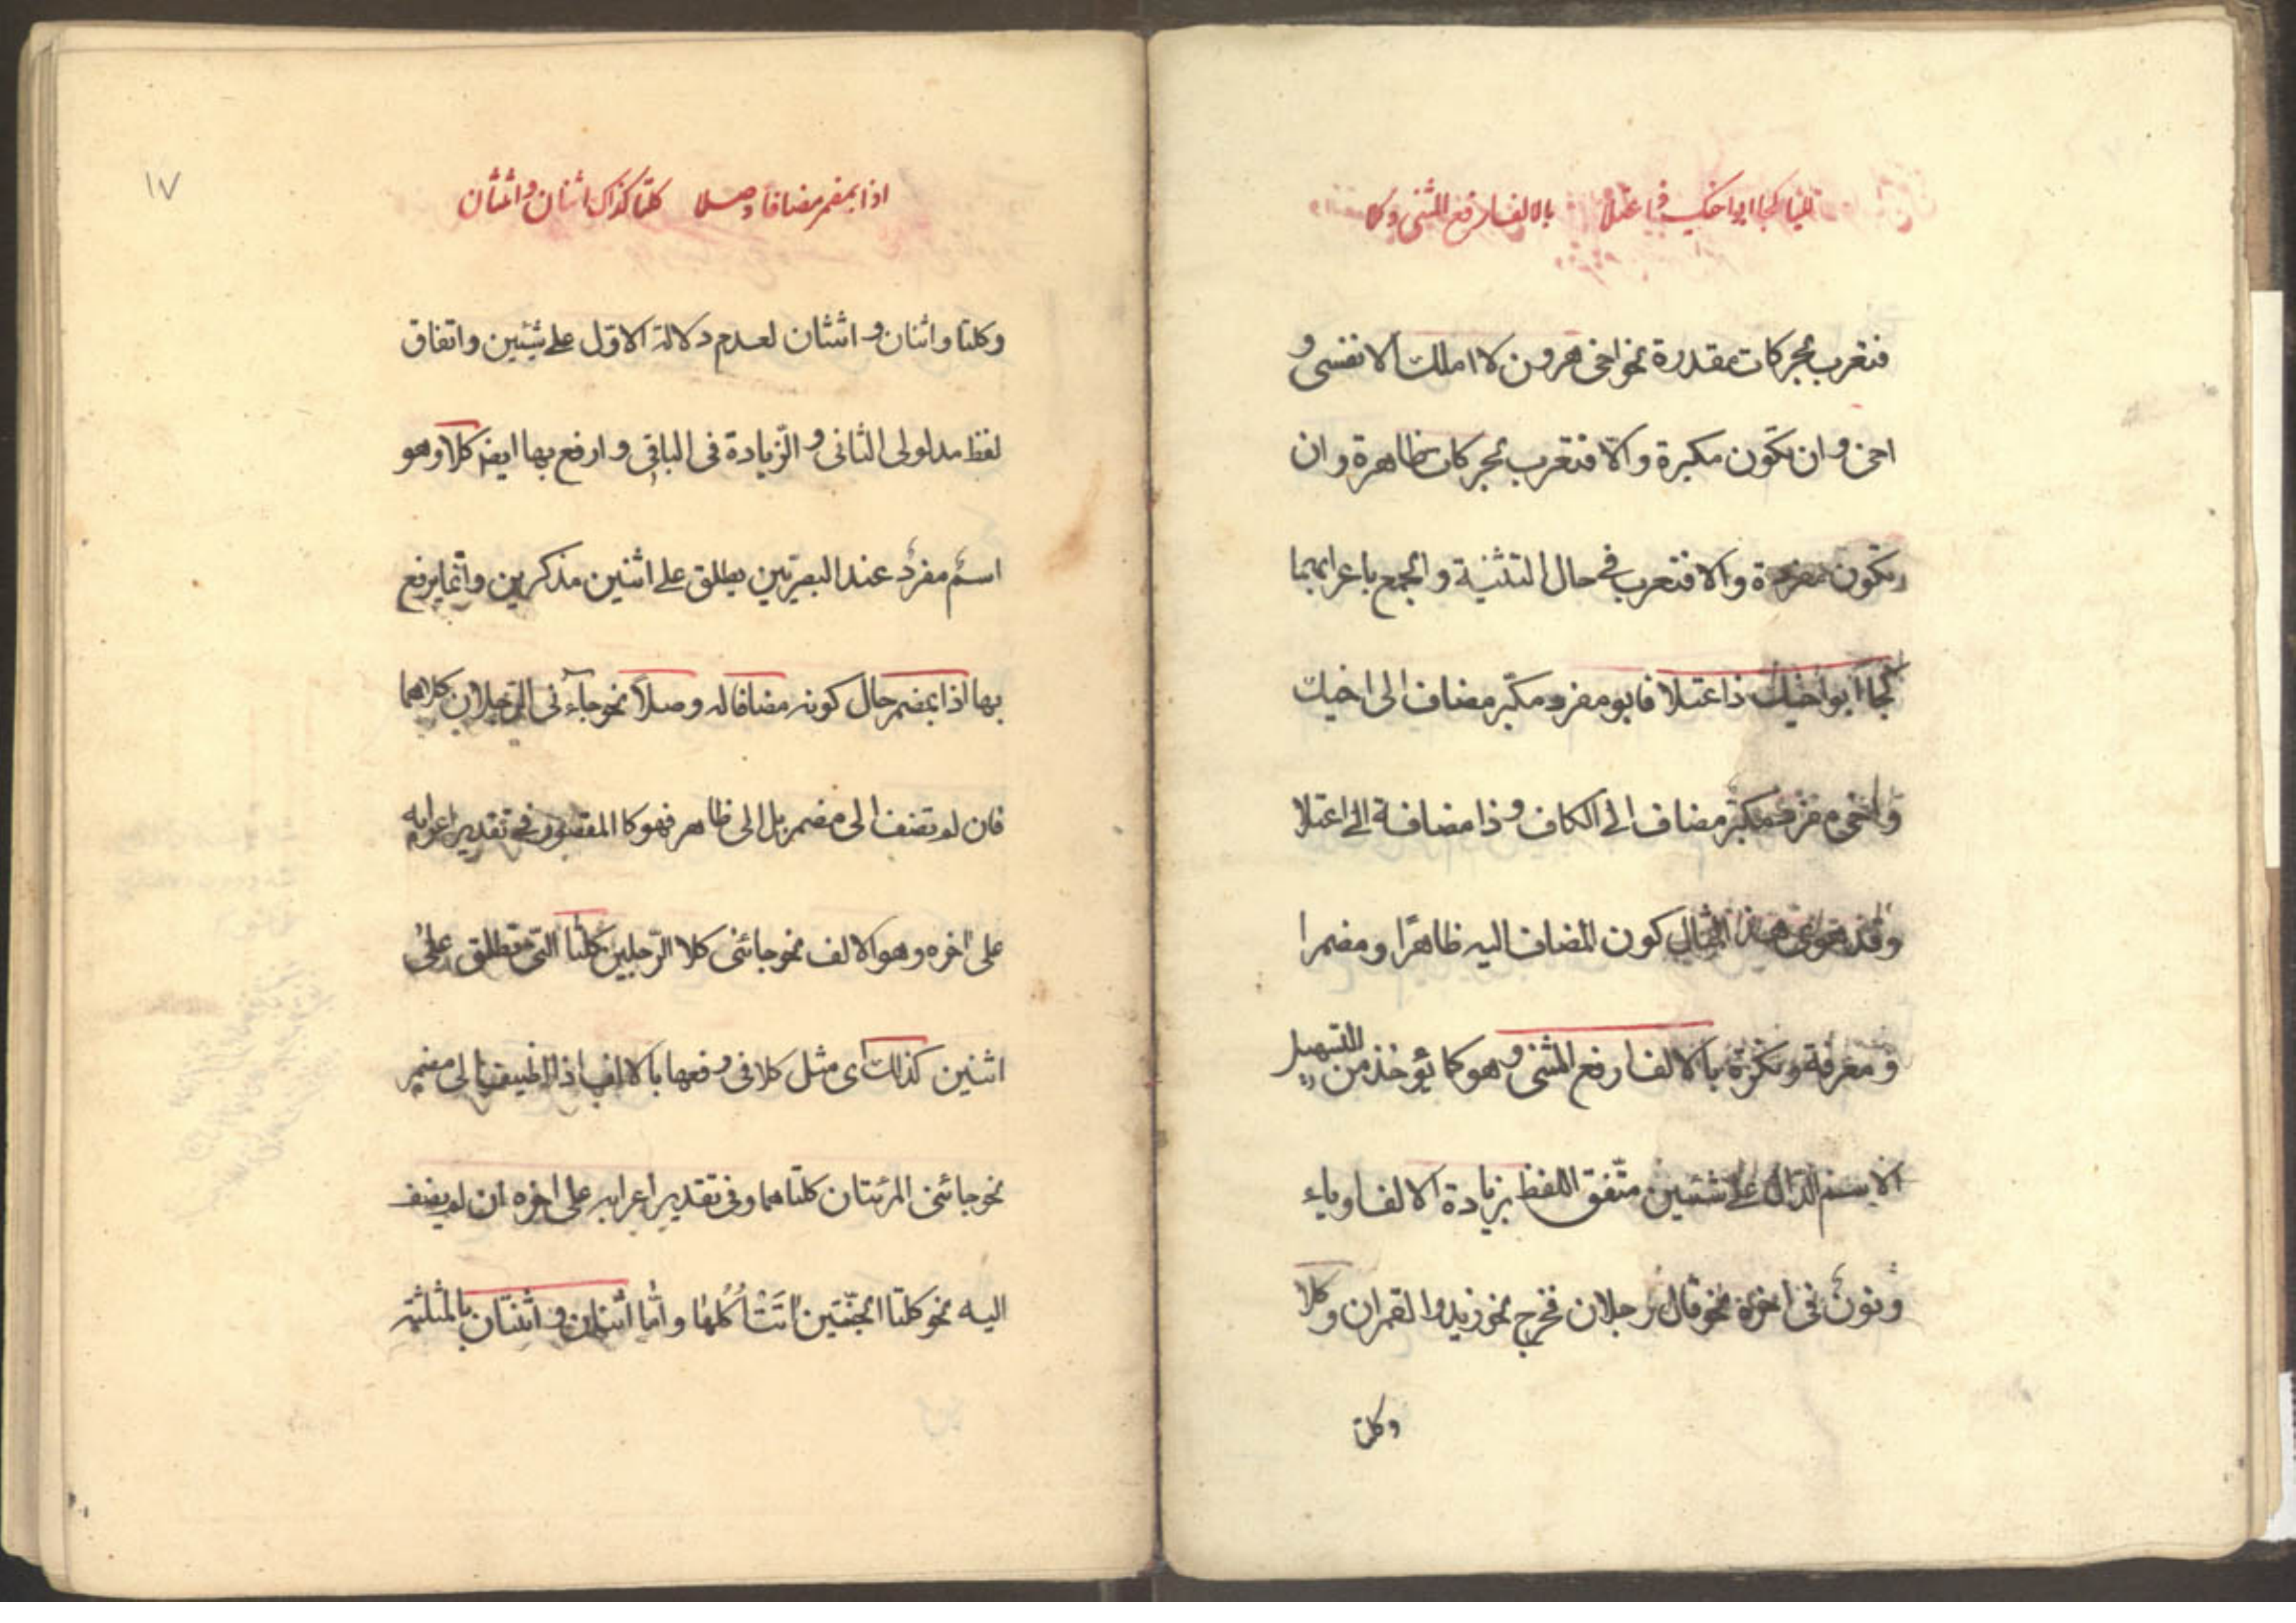 للیا كجا ابواخیك ذا اعتلا بالالف ارفع المثنى وكلا
فتعرب بحركات مقدرة نحو اخى هرون لا املك الا نفسى و
اخى و ان تكون مكبرة و الّا فتعرب بحركات ظاهرة و ان
تكون مفردة و الا فتعرب فى حال التثنية و الجمع باعرابهما
كجا ابو اخيك ذا عتلا فابو مفرد مكبّر مضاف الى اخيك
و اخى مفرد مكبّر مضاف الى الكاف و ذا مضافة الى اعتلا
و قد حوى هذا المثال كون المضاف اليه ظاهرًا و مضمرا
و معرفة و نكرة بالالف ارفع المثنى و هو كما يؤخذ من التسهيل
الاسم الدّالّ على شيئين متّفقى اللفظ بزيادة الالف او ياء
و نون فى اخره نحو قال رجلان فخرج نحو زيد و القمران و كلا
و كلتا
١٧
اذا بمضمر مضافا وصلا كلتا كذاك اثنان و اثنتان
و كلتا و اثنان و اثنتان لعدم دلالة الاوّل على شيئين و اتفاق
لفظ مدلولى الثانى و الزّيادة فى الباقى و ارفع بها ايضا كلا و هو
اسمٌ مفردٌ عند البصريّين يطلق على اثنين مذكرين و انّما يرفع
بها اذا بمضمر حال كونه مضافا له وصلاً نحو جاءنى الرّجلان كلاهما
فان لم تضف الى مضمر بل الى ظاهر فهو كا المقصور فى تقدير اعرابه
على اخره و هو الالف نحو جائنى كلا الرّجلين كلتا التى تطلق على
اثنين كذلك اى مثل كلا فى رفعها بالالف اذا اضيفت الى مضمر
نحو جائتنى المرئتان كلتاهما و فى تقدير اعرابه على اخره ان لم يضف
اليه نحو كلتا الجنّتين اتَتْ اُكُلَها و امّا اثنان و اثنتان بالمثلثة